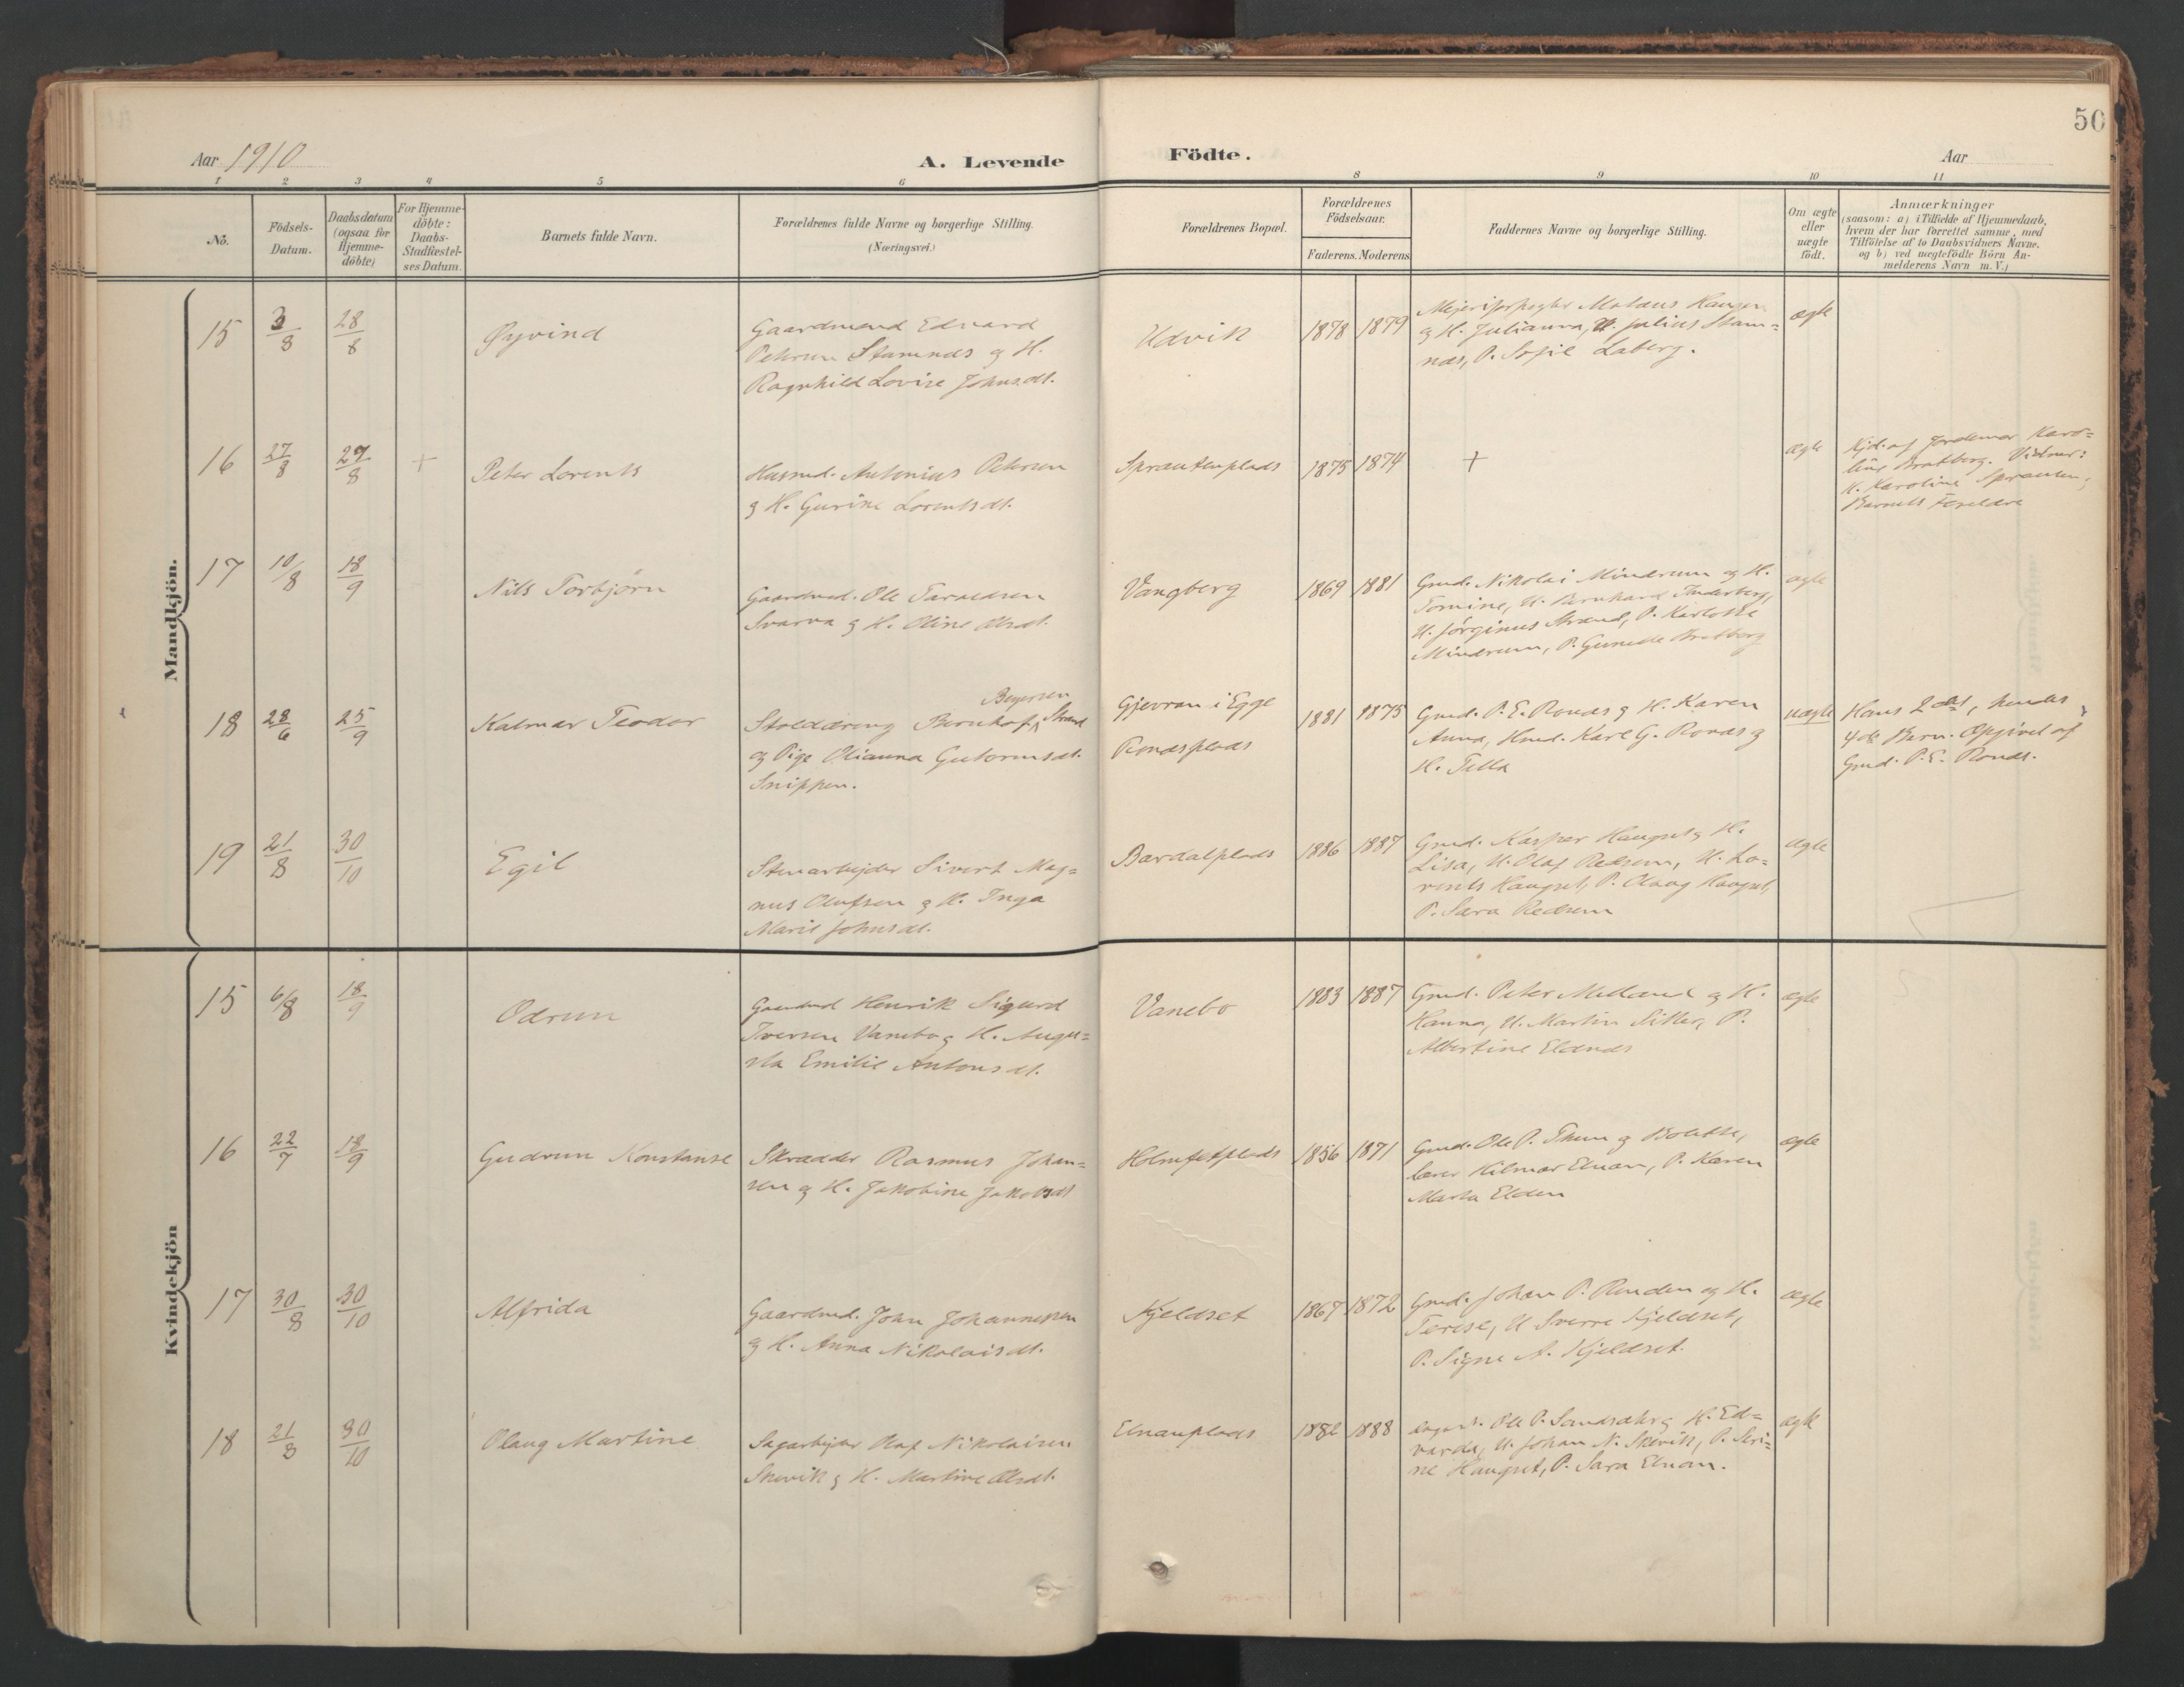 50
Aar 1910
A. Levende
Födte.
Aar
1 2 3 4 5 6 8 9 10 11
No.
Födsels-
Datum.
Daabsdatum
(ogsaa for
Hjemme-
döbte)
For Hjemme-
döbte:
Daabs-
Stadfæstel-
ses Datum.
Barnets fulde Navn.
Forældrenes fulde Navne og borgerlige Stilling.
(Næringsvei.)
Forældrenes Bopæl.
Forældrenes
Födselsaar.
Faderens. Moderens
Faddernes Navne og borgerlige Stilling.
Om ægte
eller
uægte
födt.
Anmærkninger
(saasom: a) i Tilfælde af Hjemmedaab,
hvem der har forrettet samme, med
Tilföielse af to Daabsvidners Navne.
og b) ved uægtefödte Börn An-
melderens Navn m. V.)
Mandkjön.
15 3/8 28/8 Øyvind
Gaardmand Edvard
Petersen Stamnes og H.
Ragnhild Lovise Johnsdt.
Udvik 1878 1879
Mataus Haugan
og H. Julianna, U. Julius Stam=
nes, P. Sofie Laberg.
ægte
16 27/8 29/8 + Peter Lorents
Husmd. Antonius Petersen
g H. Gurine Lorentsdt.
Sprautenplads 1875 1874 +
ægte
Hjd. af Jordemor Karo=
line Bratberg. Vidner:
K. Karoline Sprauten,
Barnets Foreldre
17 10/8 18/9 Nils Torbjørn
Gaardmd. Ole Taraldsen
Svarva g H. Oline Olsdt.
Vangberg 1869 1881
Grmd. Nikolai Mindrum og H.
Tomine, U. Bernhard Inderberg,
U. Jørginus Strand, P. Karlotte
Mindrum, P. Gunelle Bratberg
ægte
18 28/6 25/9 Kalmar Teodor
Beyersen
Stalddreng Bernhof Strand
og Pige Olianna Gutormsdt.
Snippen.
Gjevran i Egge
Ronesplads
1881 1875
Grmd. P. E. Rones g H. Karen
Anna, Hmd. Karl G. Rones g
H. Tella
uægte
Hans 2det, hendes
4de Barn. Opgivet af
Grmd. P. E. Rones.
19 21/8 30/10 Egil
Stenarbejder Sivert Mag=
nus Olufsen g H. Inga
Marie Johnsdt.
Bardalplads 1886 1887
Grmd. Kasper Haugset g H.
Lisa, U. Olaf Redsem, U. Lo=
rents Haugset, P. Olaug Haugset,
P. Sara Redsem
ægte
Kvindekjön
15 6/8 18/9 Odrun
Gaardmd Henrik Sigurd
Iversen Vanebo g H. Augu=
sta Emilie Antonsdt.
Vanebo 1883 1887
Grmd. Peter Melland g H.
Hanna, U. Martin Sitter, P.
Albertine Eldnes
ægte
16 22/7 18/9 Gudrun Konstanse
Skrædder Rasmus Johan=
sen g H. Jakobine Jakobsdt
Holmsetplads 1856 1871
Grmd. Ole P. Thun g Bolette,
lærer Hilmar Elnan, P. Karen
Marta Elden
ægte
17 30/8 30/10 Alfrida
Gaardmd. John Johannesen
g H. Anna Nikolaisdt.
Kjeldset 1867 1872
Grmd. Johan P. Renden og H.
Terese, U Sverre Kjeldset,
P. Signe A. Kjeldset.
ægte
18 21/8 30/10 Olaug Martine
Sagarbejder Olaf Nikolaisen
Skevik g H. Martine Olsdt.
Elnanplads 1882 1888
Ole P. Sandsæter g H. Ed=
varda, U. Johan N. Skevik, P. Seri=
ne Haugset, P. Sara Elnan.
ægte